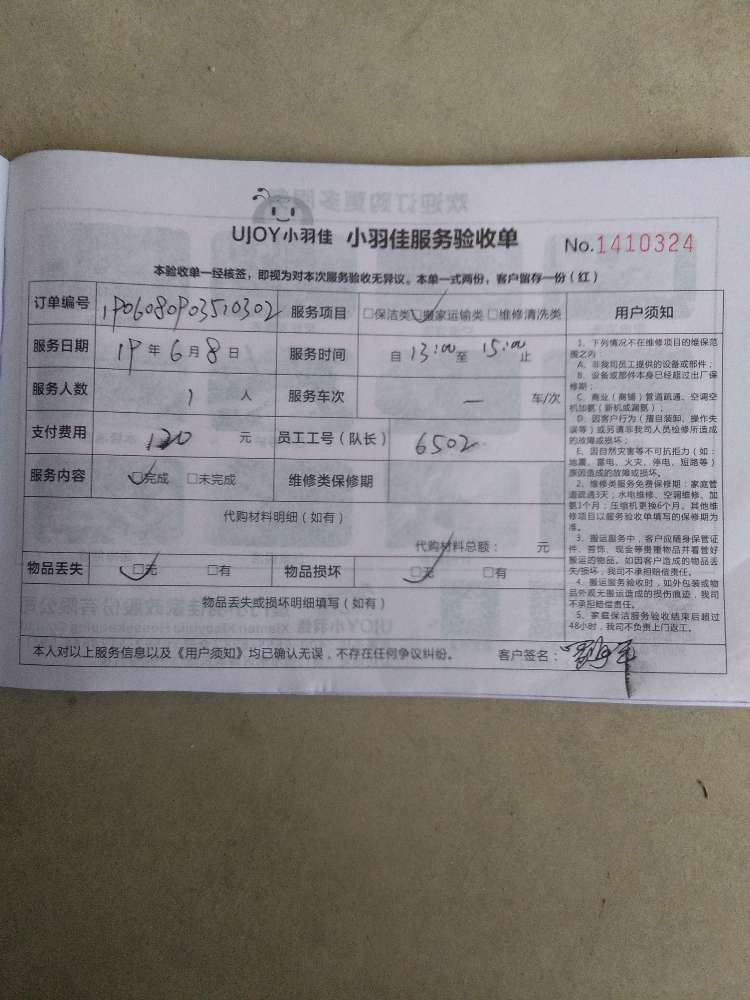 UJOY小羽佳 小羽佳服务验收单 No.1410324
本验收单一经核签，即视为对本次服务验收无异议。本单一式两份，客户留存一份（红）
订单编号 1906080903510302 服务项目 □保洁类 □搬家运输类 □维修清洗类
服务日期 19 年 6 月 8 日 服务时间 自 13:00 至 15:00 止
服务人数 1 人 服务车次 — 车/次
支付费用 120 元 员工工号（队长） 6502
服务内容 □完成 □未完成 维修类保修期
代购材料明细（如有）
代购材料总额： 元
物品丢失 □无 □有 物品损坏 □无 □有
物品丢失或损坏明细填写（如有）
本人对以上服务信息以及《用户须知》均已确认无误，不存在任何争议纠纷。 客户签名：
用户须知
1、下列情况不在维修项目的维保范
围之内：
A、非我司员工提供的设备或部件；
B、设备或部件本身已经超过出厂保
修期；
C、商业（商铺）管道疏通、空调空
机加氨（新机或漏氨）；
D、因客户行为（擅自装卸、操作失
误等）或另请非我司人员检修所造成
的故障或损坏；
E、因自然灾害等不可抗拒力（如：
地震、雷电、火灾、停电、短路等）
原因造成的故障或损坏。
2、维修类服务免费保修期：家庭管
道疏通3天；水电维修、空调维修、加
氨1个月；压缩机更换6个月。其他维
修项目以服务验收单填写的保修期为
准。
3、搬运服务中，客户应随身保管证
件、首饰、现金等贵重物品并看管好
搬运的物品。如因客户造成的物品丢
失/损坏，我司不承担赔偿责任。
4、搬运服务验收时，如外包装或物
品外观无搬运造成的损伤痕迹，我司不
承担赔偿责任。
5、家庭保洁服务验收结束后超过
48小时，我司不负责上门返工。